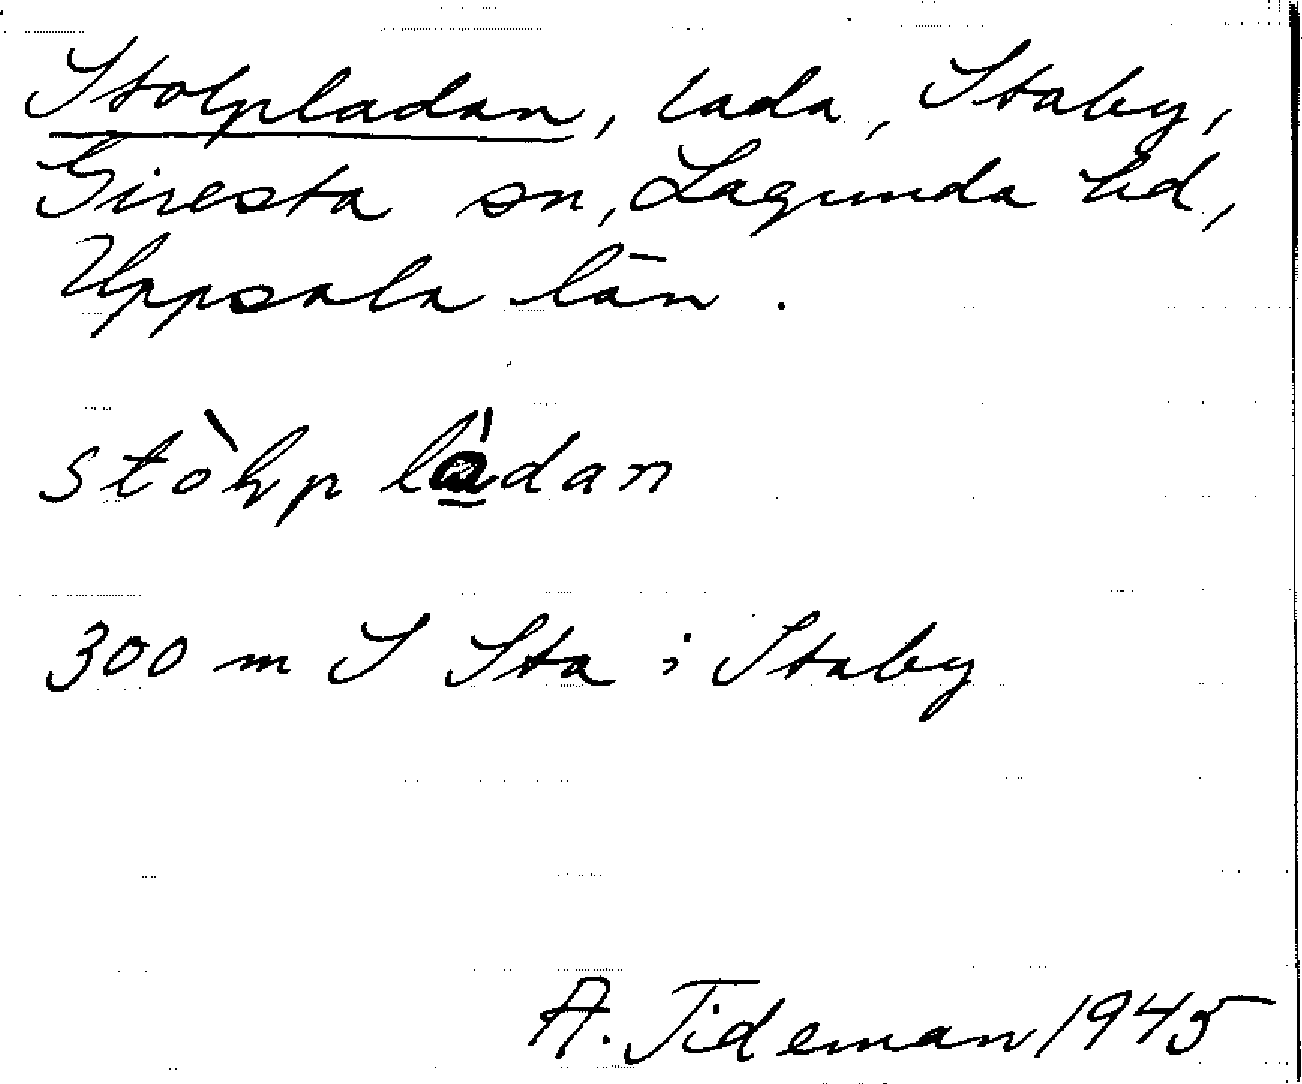 Stolpladan, lada, Staby,
Giresta sn, Lagunda hd,
Uppsala län.
stòlpládan
300 m S Sta i Staby
A. Tideman 1945